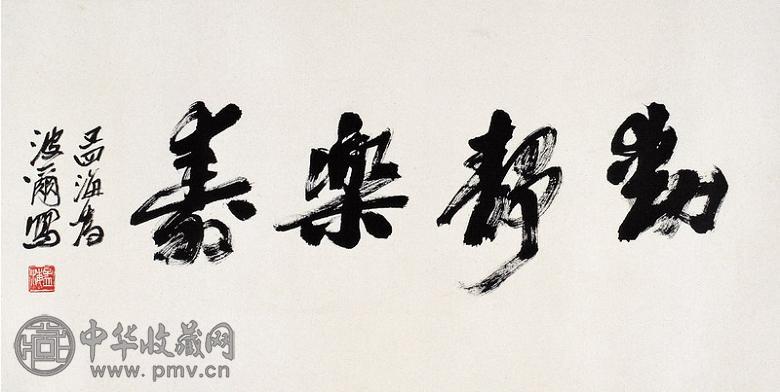 動靜樂壽
海為
波爾寫
中华收藏网
www.pmv.cn